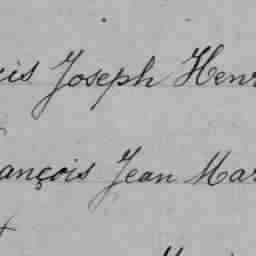 cis Joseph Henr
ançois Jean Mar